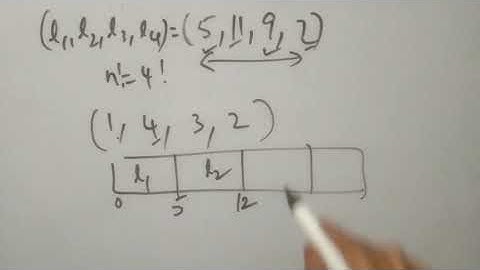 (l₁,l₂,l₃,l₄)=(5,11,9,2)
n!=4!
(1,4,3,2)
l₁ l₂
0 5 12